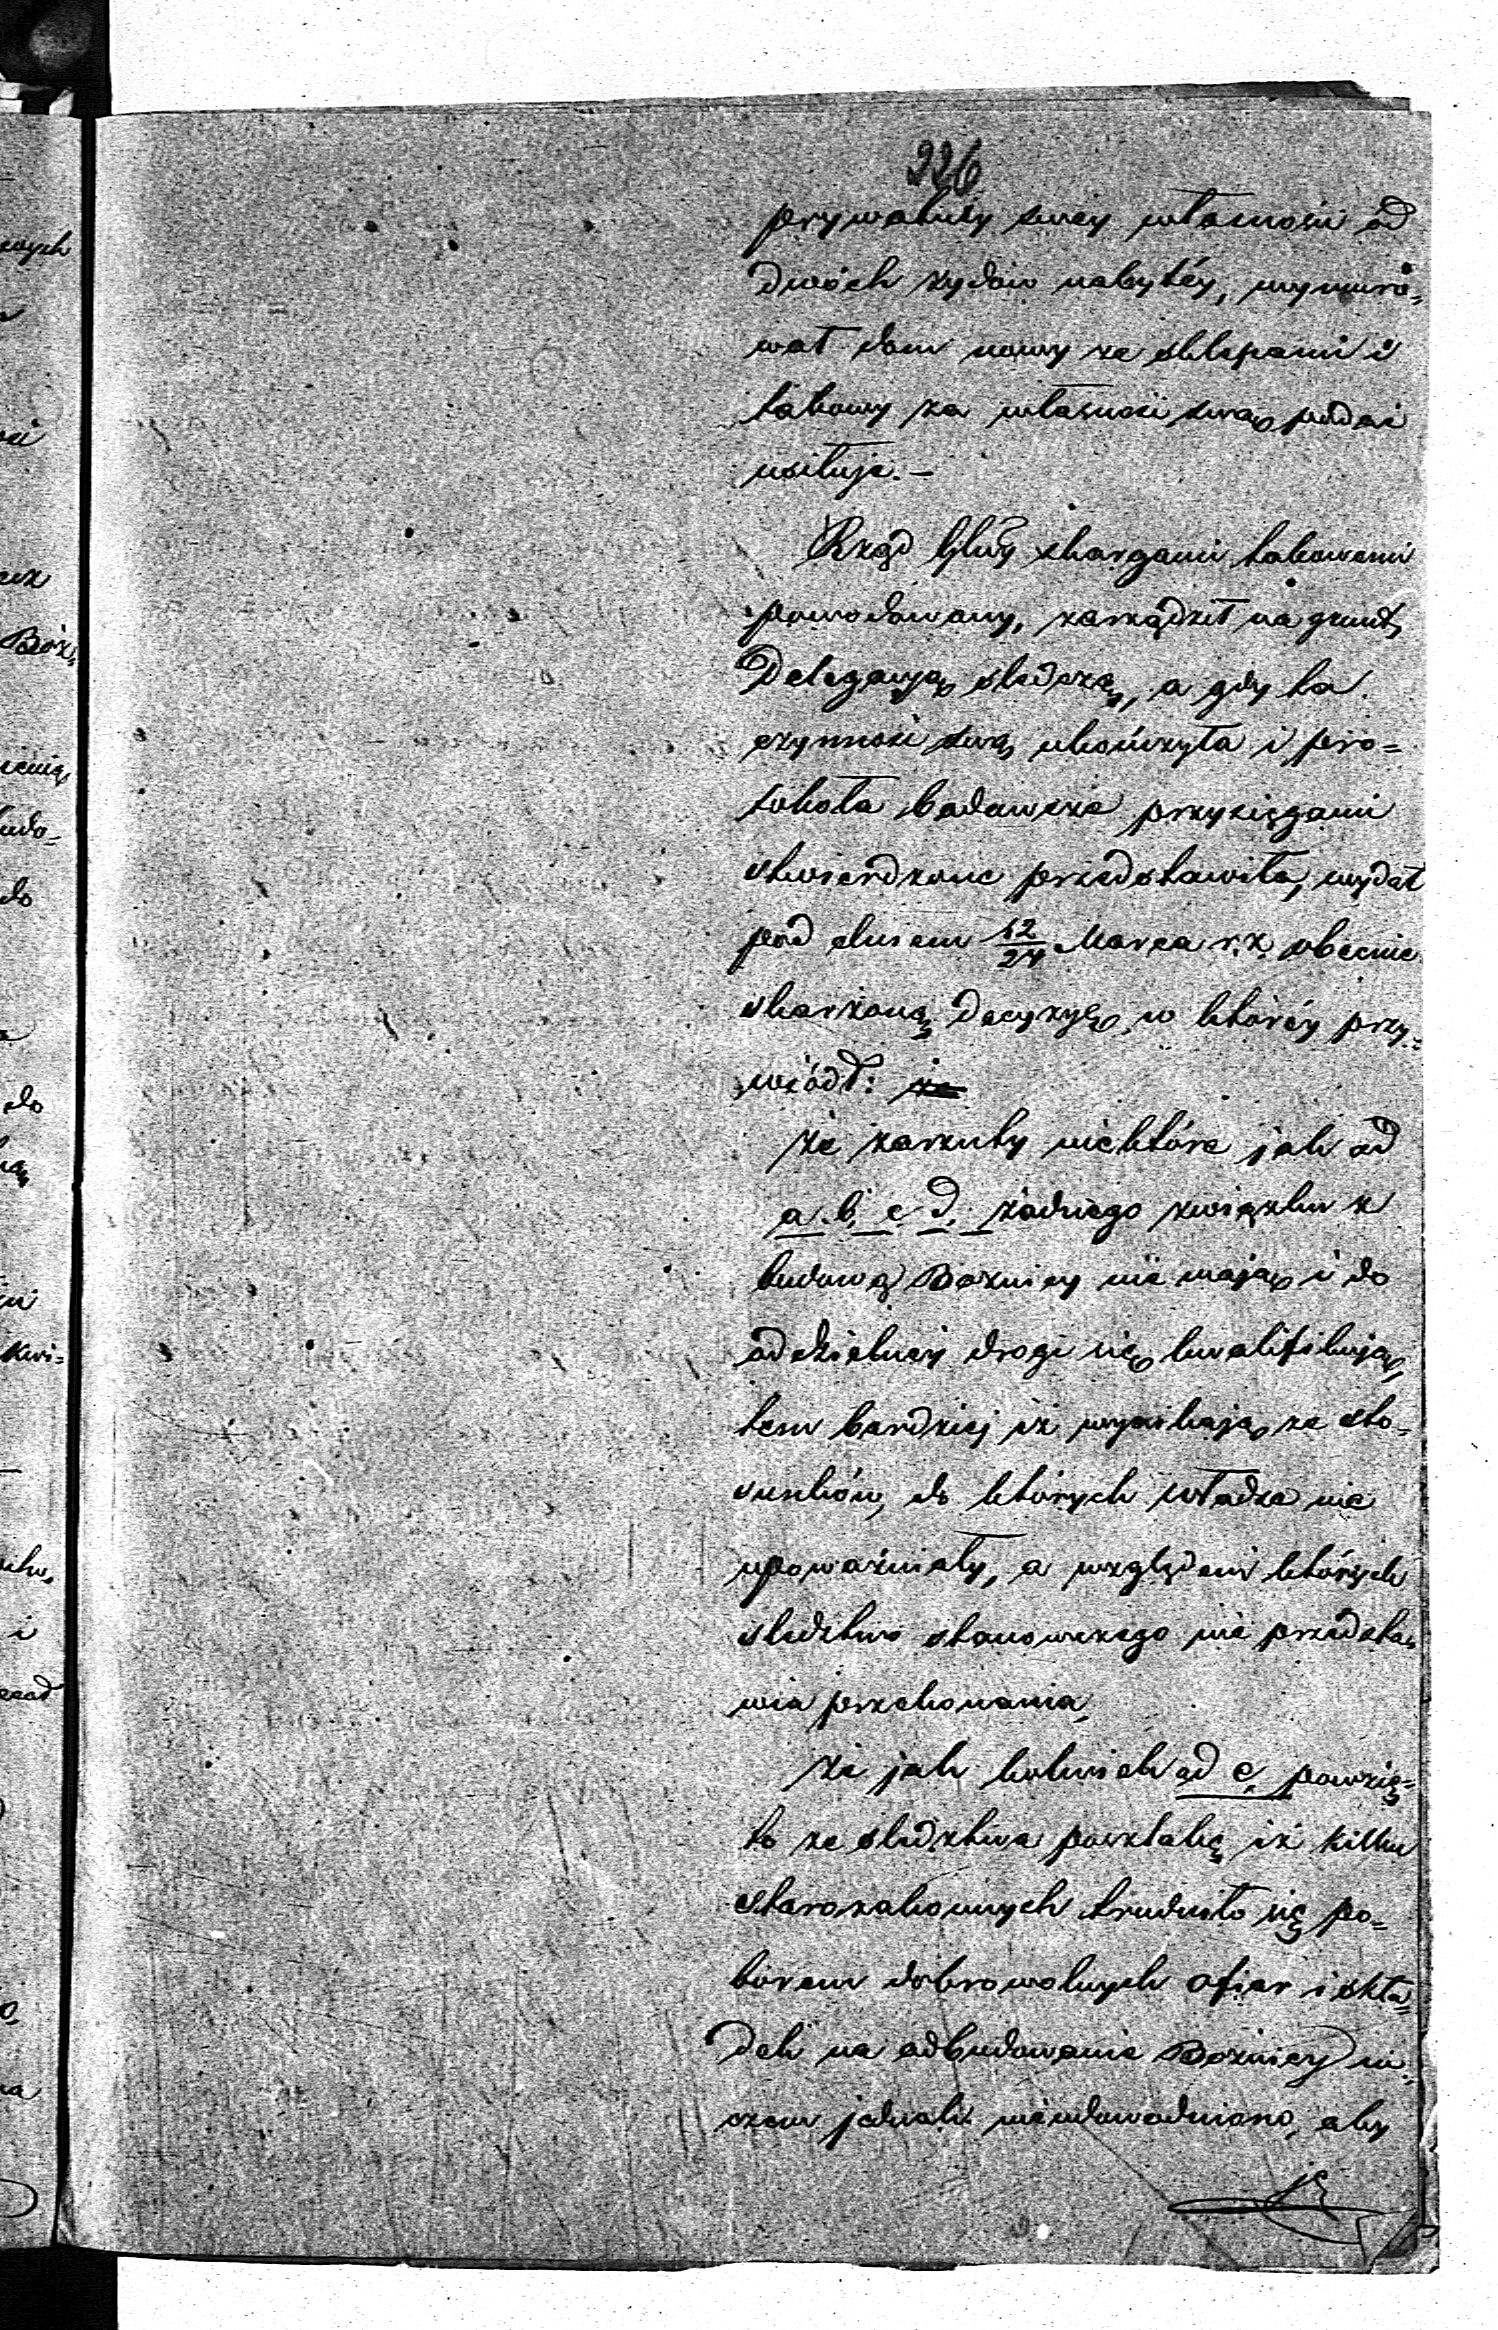 226
prywatnéy swéy własności od
dwóch żydów nabytéy, wymuro=
wał dom nowy ze sklepami i
takowy za własność swą podać
usiłuje.—
Rząd Gbny skargami takowemi
powodowany, zarządził na gruncie
Delegacyą śledczą, a gdy ta
czynność swą ukończyła i pro=
tokóła badawcze przysięgami
stwierdzone przedstawiła, wydał
pod dniem 12/24 Marca r. z. obecnie
skarżoną Decyzyę, w któréy przy=
wiódł:
że zarzuty niektóre jak ad
a. b. c. d. żadnego związku z
budową Bożnicy nie mają i do
oddzielnéy drogi się kwalifikują,
tem bardziej iż wynikają ze sto=
sunków, do których władza nie
upoważniały, a względem których
śledztwo stanowczego nie przedsta=
wia przekonania,
że jak kolwiek ad e, powzię=
to ze śledztwa poszlakę iż kilku
starozakonnych trudniło się po=
borem dobrowolnych ofiar i skła=
dek na odbudowanie Bożnicy ni=
czem jednak nieudowodniono, aby